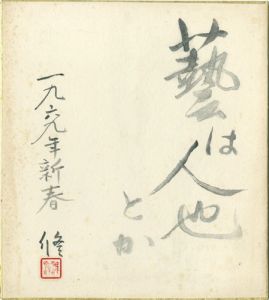 藝は
人也
とか
一九六九年新春
修